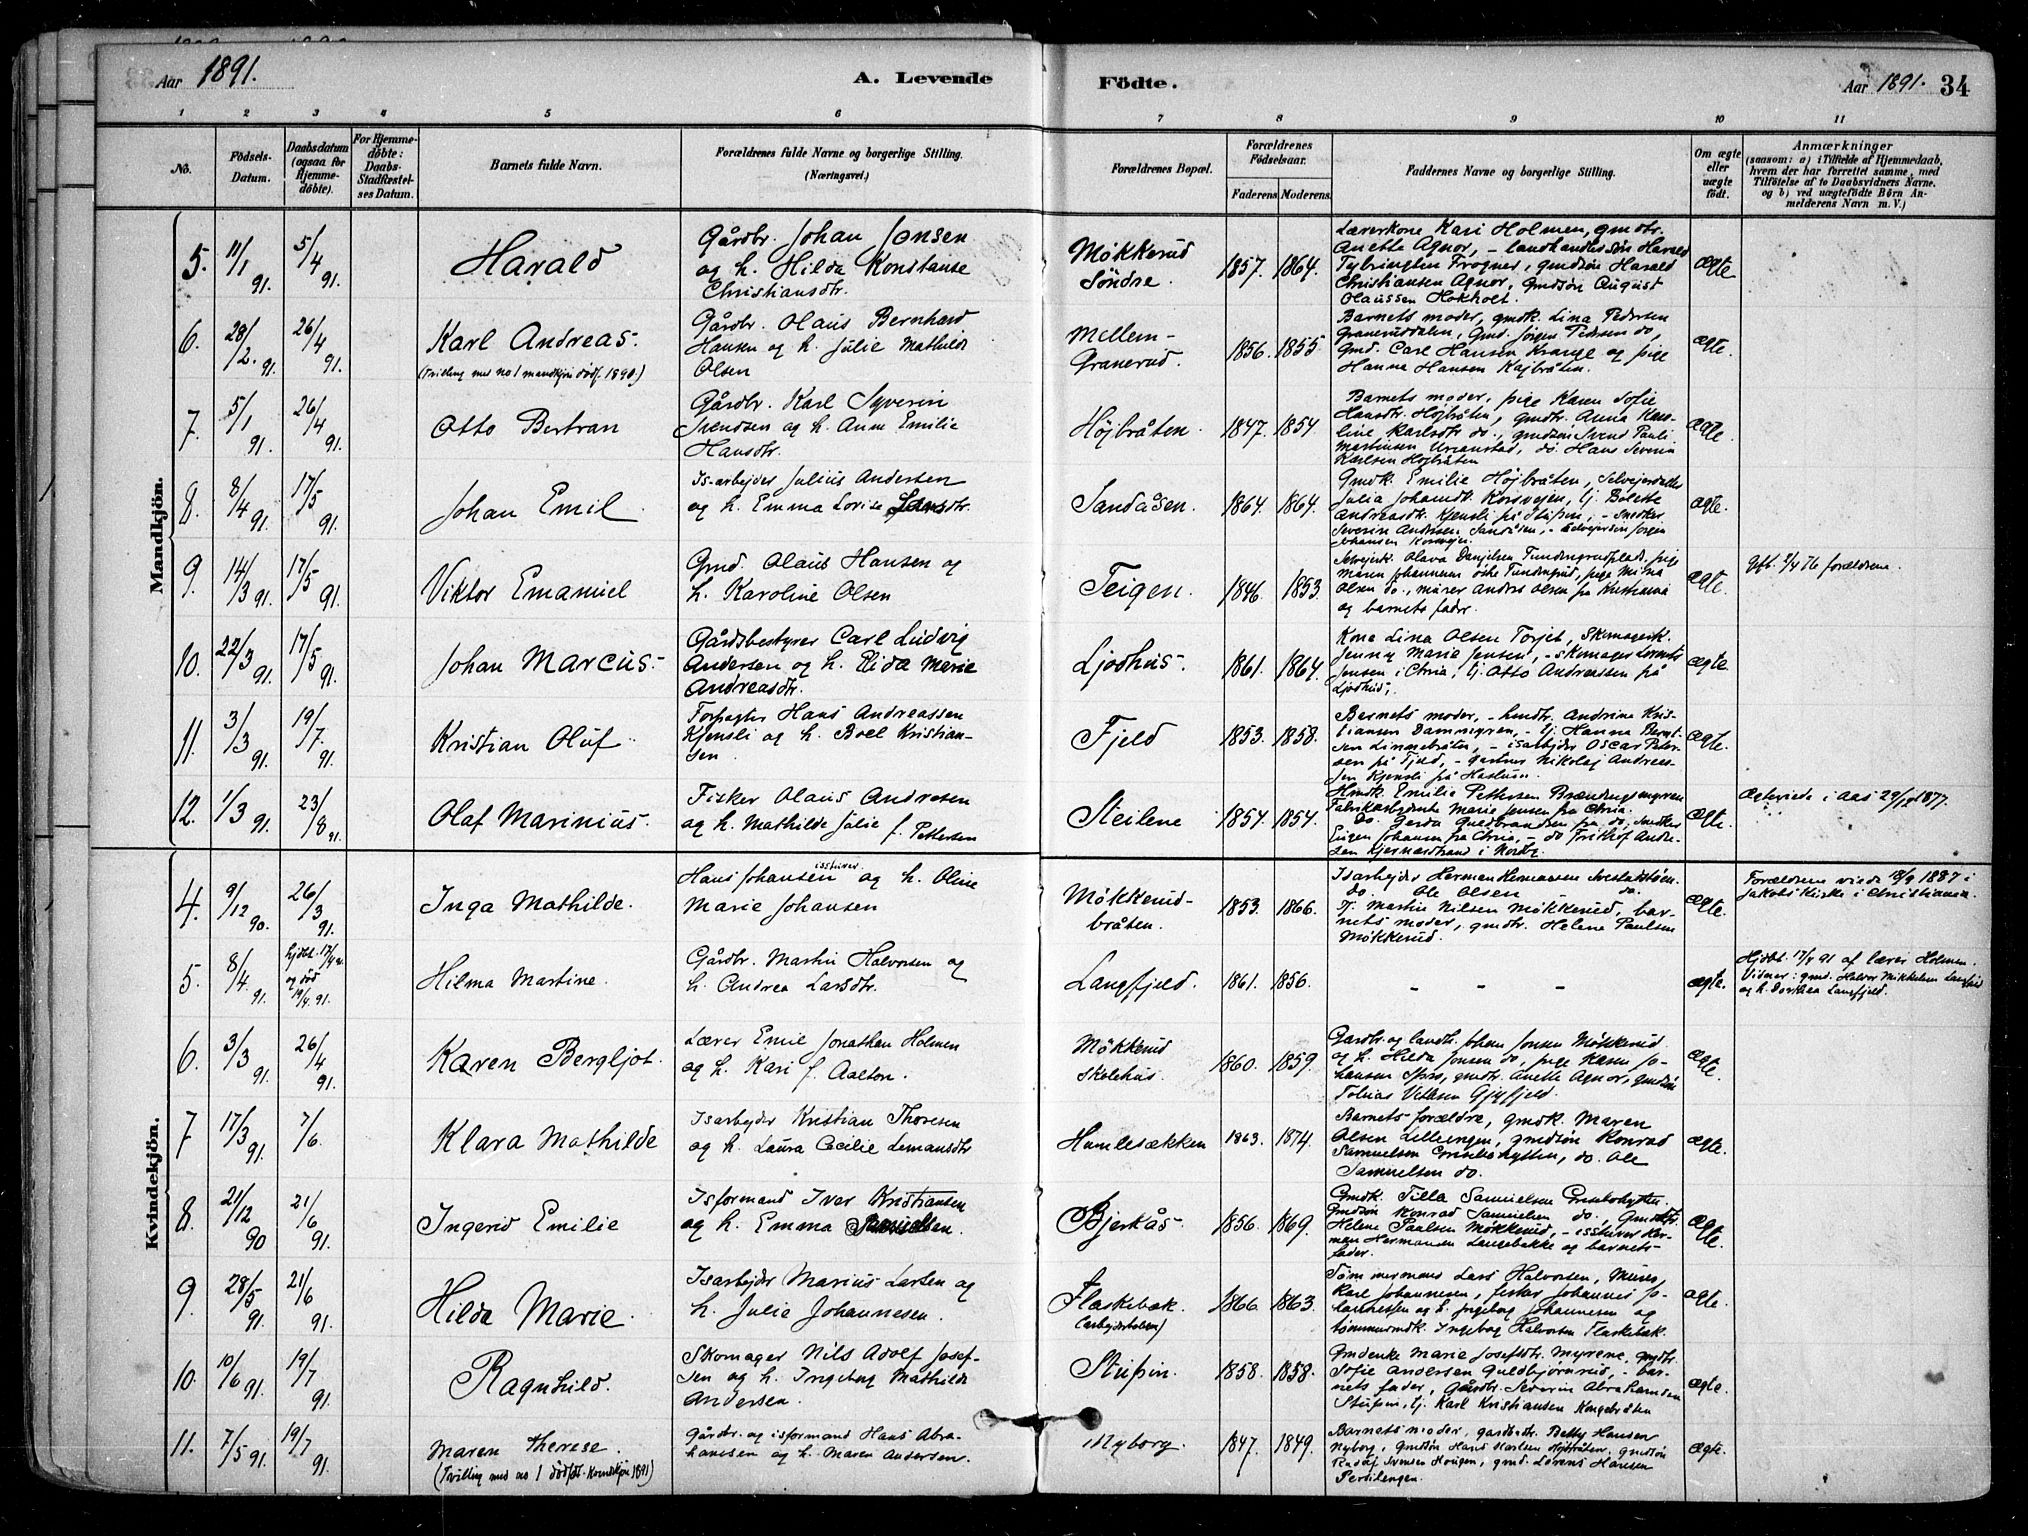 Aar 1891.
A. Levende
Födte.
Aar 1891. 34
1 2 3 4 5 6 7 8 9 10 11
No.
Födsels-
Datum.
Daabsdatum
(ogsaa for
Hjemme-
döbte).
For Hjemme-
döbte:
Daabs-
Stadfæstel-
ses Datum.
Barnets fulde Navn.
Forældrenes fulde Navne og borgerlige Stilling.
(Næringsvei.)
Forældrenes Bopæl.
Forældrenes
Födselsaar.
Faderens. Moderens.
Faddernes Navne og borgerlige Stilling.
Om ægte
eller
uægte
födt.
Anmærkninger
(saasom: a) i Tilfælde af Hjemmedaab,
hvem der har forrettet samme, med
Tilföielse af to Daabsvidners Navne.
og b) ved uægtefödte Börn An-
melderens Navn m. V.)
Mandkjön.
5. 11/1 91. 5/4 91. Harald
Gårdbr. Johan Jonsen
og h. Hilda Konstanse
Christiansdtr.
Møkkerud
Söndre. 1857. 1864.
Lærerkone Kari Holmen, gmdtr.
Anette Agnor, - landhandlersön Harald
Frogner, gmdsön Harald
Christiansen Agnor, Gmdsön August
Olaussen Hokholt. ægte
6. 28/2. 91. 26/4 91. Karl Andreas.
(Tvilling med no 1 mandkjön dödf. 1890.)
Gårdbr. Olaus Bernhard
Hansen og h. Julie Mathilde
Olsen
Mellem-
Granerud. 1856. 1855
Barnets moder, gmdk. Lina Pedersen
Graneruddalen, Gmd. Jörgen Pedersen do,
Gmd. Carl Hansen Krange og pige
Hanna Hansen Højbråten. ægte.
7. 5/1 91. 26/4 91. Otto Bertran
Gårdbr. Karl Syverin
Svendsen og h. Anne Emilie
Hansdtr.
Højbråten. 1847. 1854
Barnets moder, pige Karen Sofie
Hansdtr. Højbråten, gmdtr. Anna Karo-
line Karlsdtr do., gmdsön Svend Pauli
Martinsen, do. Hans Severin
Karlsen Højbråten ægte.
8. 8/4 91. 17/5 91. Johan Emil
Is-arbejder Julius Andersen
og h. Emma Lovise
Sandåsen. 1864. 1864.
Gmdk. Emilie Højbråten, Selvejerdatter
Julia Johansdtr. Korsvejen, tj. Bolette
Andreasdtr. Kjensli på Stupin, - Snedker
Severin Andersen Sandåsen, - Selvejersön Jörgen
Johansen Korsvejen. ægte.
9. 14/3 91. 17/5 91. Viktor Emanuel
Gmd. Olaus Hansen og
h. Karoline Olsen
Teigen. 1846. 1853
Selvejerk. Olava Danjelsen, pige
Maren Johannesen, pige Mina
Olsen do., murer Anders Olsen fra Kristiania
og barnets fader. ægte.
Gift 9/4 76 forældrene.
10. 22/3 91. 17/5 91. Johan Marcus.
Gårdsbestyrer Carl Ludvig
Andersen og h. Elida Marie
Andreasdtr.
Ljodhus. 1861. 1864.
Kone Lina Olsen Torjet, Skomagerk.
Jenny Marie Jensen, - skomager Lorents
Jensen i Chria, tj. Otto Andreassen på
Ljodhus. ægte
11. 3/3 91. 19/7. 91. Kristian Oluf
Forpagter Hans Andreassen
Kjensli og h. Boel Kristian-
sen
Fjeld 1853. 1858.
Barnets moder, - hmdtr. Andrine Kris-
tiansen Dammyren, - tj. Hanna Bernt-
sen, - isarbejder Oscar Peter-
sen på Fjeld, - gartner Nikolaj Andreas-
sen Kjensli på Haslum. ægte.
12. 1/3 91. 23/8 91. Olaf Marinius.
Fisker Olaus Andresen
og h. Mathilde Julie f. Pettersen
Steilene 1854. 1854.
Hmdk. Emilie Pettersen Brændengsmyren
Fabrikarbejderske Marie Jensen fra Chria.
Do. Gerda Guldbrandsen fra do, Snedker
Eugen Johansen fra Chria, - do Frithjof Andre-
sen Kjernæsstrand i Nordby. ægte.
Ægteviede i Aas 29/12 1877.
Kvindekjön.
4. 9/12 90. 26/3 91. Inga Mathilde.
Hans Johansen isskriver og h. Oline
Marie Johansen
Møkkerud-
bråten. 1853. 1866.
Isarbejder Herman Hermansen
do. Ole Olsen do.
tj. Martin Nilsen Møkkerud, bar-
nets moder, gmdtr. Helene Paulsen
Møkkerud. ægte.
Forældrene viede 18/9 1887 i
Jakobs Kirke i Christiania.
5. 8/4. 91. hjdbt. 17/4 91.
og död
19/4. 91. Hilma Martine.
Gårdbr. Martin Halvorsen og
h. Andrea Larsdtr.
Langfjeld. 1861. 1856. - - - ægte.
Hjdbt. 17/4 91 af lærer Holmen.
Vidner: gmd. Halvor Mikkelsen Langfjeld
og h. Dorthea Langfjeld.
6. 3/3 91. 26/4 91. Karen Bergljot.
Lærer Emil Jonathan Holmen
og h. Kari f. Aalton.
Møkkerud
Skolehus. 1860. 1859
Gårdbr. og landh. Johan Jonsen Møkkerud
og h. Hilda Jonsen do, pige Karen Jo-
hansen Spro, gmdtr. Anette Agnor, gmdsön
Tobias Gjøfjeld. ægte.
7 17/3 91. 7/6. Klara Mathilde
Isarbejder Kristian Thoresen
og h. Laura Cecilie Lemansdtr
Humlesækken 1863. 1874.
Barnets forældre, gmdk. Maren
Olsen Lillengen, gmdsön Konrad
Samuelsen Corneliohytten, do. Ole
Samuelsen do. ægte.
8. 21/12 90 21/6 91. Ingerid Emilie
Isformand Iver Kristiansen
og h. Emma Samuelsen.
Bjerkås. 1856. 1869.
Gmdk. Tilla Samuelsen
Gmdsön Konrad Samuelsen do, Gmdtr.
Helene Paulsen Møkkerud, - isskriver Her-
man Hermansen Langebakke og barnets
fader. ægte.
9. 28/5 91. 21/6 91. Hilda Marie.
Isarbejder Marius Larsen og
h. Julie Johannesen.
Flaskebæk.
(arbejderbolsen) 1866. 1863.
Tömmermand Lars Halvorsen, Murer
Karl Johannesen, fisker Johannes Jo-
hannessen og h. Ingeborg Johannesen og
tömmermdk. Ingeborg Halvorsen Flaskebæk. ægte.
10. 10/6 91. 19/7 91. Ragnhild.
Skomager Nils Adolf Josef-
sen og h. Ingeborg Mathilde
Andersen.
Stupin. 1858. 1858.
Gmdenke Marie Josefsdtr. Myrene, gmdtr.
Sofie Andersen Guldbjørnrud, - bar-
nets fader, Gårdbr. Severin Abrahamsen
Stupin, tj. Karl Kristiansen Kongebråten ægte.
11. 7/5 91. 19/7 91. Maren Therese.
(Tvilling med no 1 dödfdt. Kvindkjön 1891)
Gårdbr. og isformand Hans Abra-
hamsen og h. Maren Andersen.
Nyborg. 1847. 1849.
Barnets moder, gårdbdtr. Betty Hansen
Nyborg, Gmdsön Hans Karlsen Højbråten, gmdsön
Rudolf Svensen Hougen, gmd. Lorens Hansen
Persilengen. ægte.